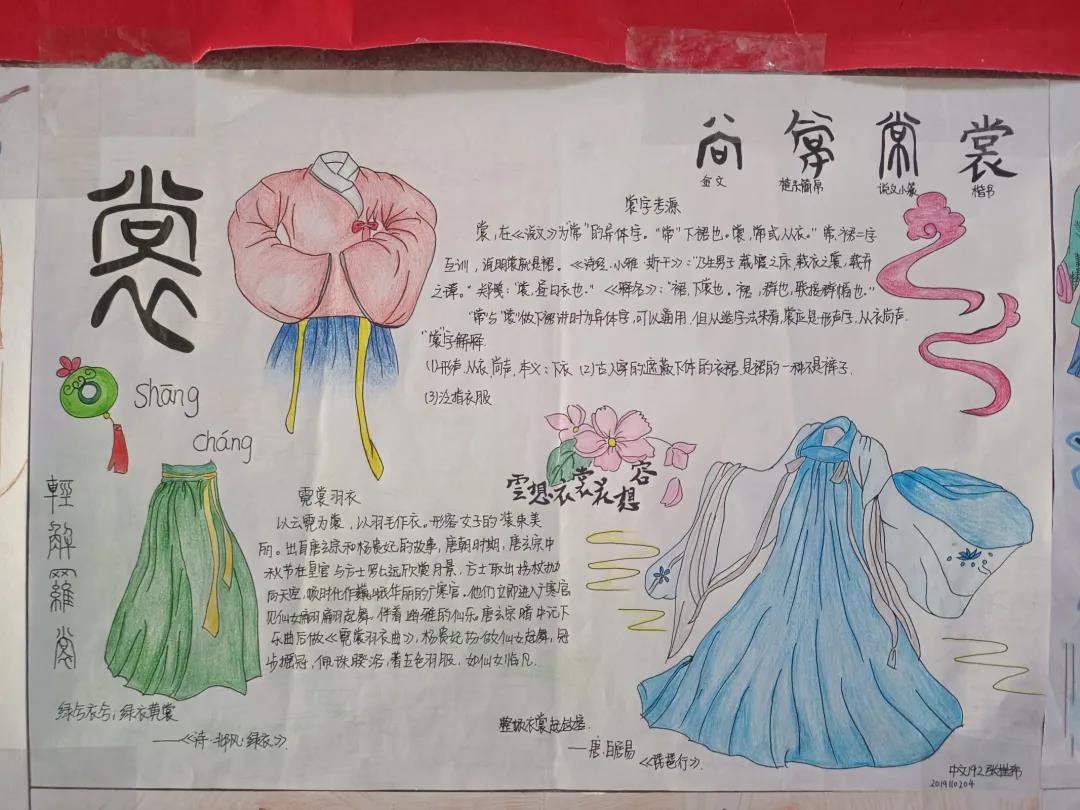 裳
shāng
cháng
金文
楚系简帛
说文小篆
楷书
裳
裳字考源
裳，在《说文》为“常”的异体字。“常”下裙也。裳，常或从衣。”常、裙二字
互训，说明裳就是裙。《诗经·小雅·斯干》：“乃生男子，载寝之床，载衣之裳，载弄
之璋。”郑笺：“裳，昼日衣也。”《释名》：“裙，下裳也。裙，群也，联接群幅也。”
“常”与“裳”做下裙讲时为异体字，可以通用，但从造字法来看，裳应是形声字，从衣尚声。
“裳”字解释
(1)形声，从衣，尚声，本义：下衣 (2)古人穿的遮蔽下体的衣裙，是裙的一种不是裤子
(3)泛指衣服
雲想衣裳花想容
霓裳羽衣
以云霓为裳，以羽毛作衣。形容女子的装束美
丽。出自唐玄宗和杨贵妃的故事，唐朝时期，唐玄宗中
秋节在皇宫与方士罗公远欣赏月景，方士取出拐杖抛
向天空，顿时化作
华丽的广寒宫。他们立即进入广寒宫
见仙女翩翩起舞，伴着幽雅的仙乐，唐玄宗暗中记下
乐曲后做《霓裳羽衣曲》，杨贵妃扮做仙女起舞，冠
步摇冠，佩珠
，着五色羽服，如仙女临凡.
輕解羅裳
绿兮衣兮，绿衣黄裳
——《诗·邶风·绿衣》.
整顿衣裳起敛容.
——唐·白居易
《琵琶行》.
中文192
2019110204